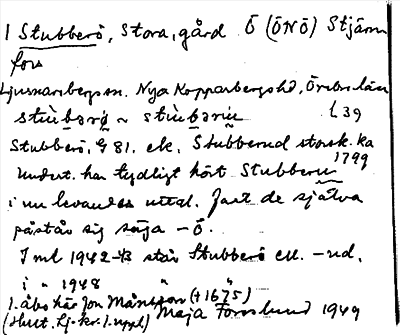 1 Stubberö, Stora, gård Ö (ÖNÖ) Stjärn
fors
Ljusnarsbergs sn. Nya Kopparbergs hd, Örebro län
L 39
Stubberö, G 81. ek. Stubberud storsk. ka
1799
Undert. har tydligt hört Stubberu
i nu levandes uttal. Fast de själva
påstår sig säga -Ö.
I ml 1942-43 står Stubberö ell. -ud.
i " 1948 "
1. åbo här Jon Månsson (+1675)
(Hult, Lj. kr. 1. uppl) Maja Forslund 1949